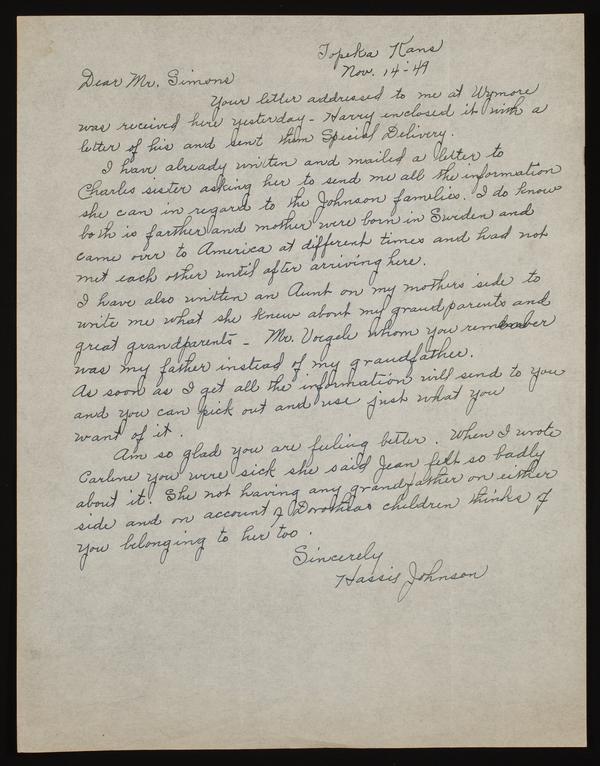 Topeka Kans
Nov. 14-'49
Dear Mr. Simons
Your letter addressed to me at Wymore
was received here yesterday - Harry enclosed it with a
letter of his and sent them Special Delivery.
I have already written and mailed a letter to
Charles sister asking her to send me all the information
she can in regard to the Johnson families. I do know
both is farther and mother were born in Sweden and
came over to America at different times and had not
met each other until after arriving here.
I have also written an Aunt on my mothers side to
write me what she knew about my grandparents and
great grandparents - Mr. Voegele whom you remember
was my father instead of my grandfather.
As soon as I get all the information will send to you
and you can pick out and use just what you
want of it.
Am so glad you are feeling better. When I wrote
Carlene you were sick she said Jean felt so badly
about it. She not having any grandfather on either
side and on account of Dorotheas children thinks of
you belonging to her too.
Sincerely
Hassie Johnson